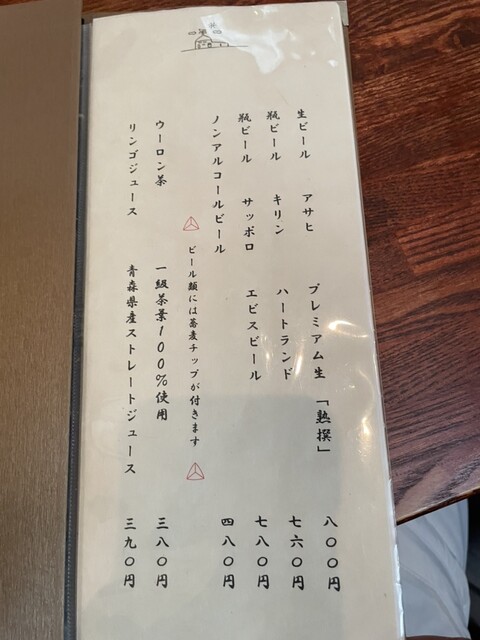 生ビール アサヒ プレミアム生 「熟撰」 八〇〇円
瓶ビール キリン ハートランド 七六〇円
瓶ビール サッポロ エビスビール 七八〇円
ノンアルコールビール 四八〇円
ビール類には蕎麦チップが付きます
ウーロン茶 一級茶葉100%使用 三八〇円
リンゴジュース 青森県産ストレートジュース 三九〇円